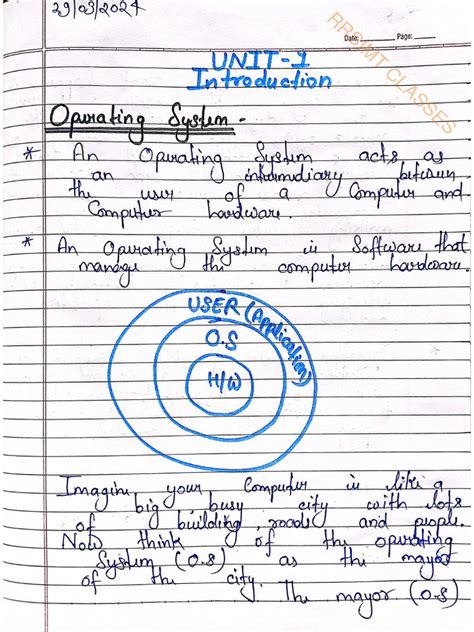 29/03/2024
RRSIMT CLASSES
Date: Page:
UNIT-1
Introduction
Operating System -
* An Operating System acts as
an intermediary between
the user of a Computer and
Computer hardware.
* An Operating System is Software that
manage the computer hardware.
USER (Application)
O.S
H/W
Imagine your Computer is like a
big, busy city with lots
of building, roads and people.
Now think of the operating
System (O.S) as the mayor
of the city. The mayor (O.S)